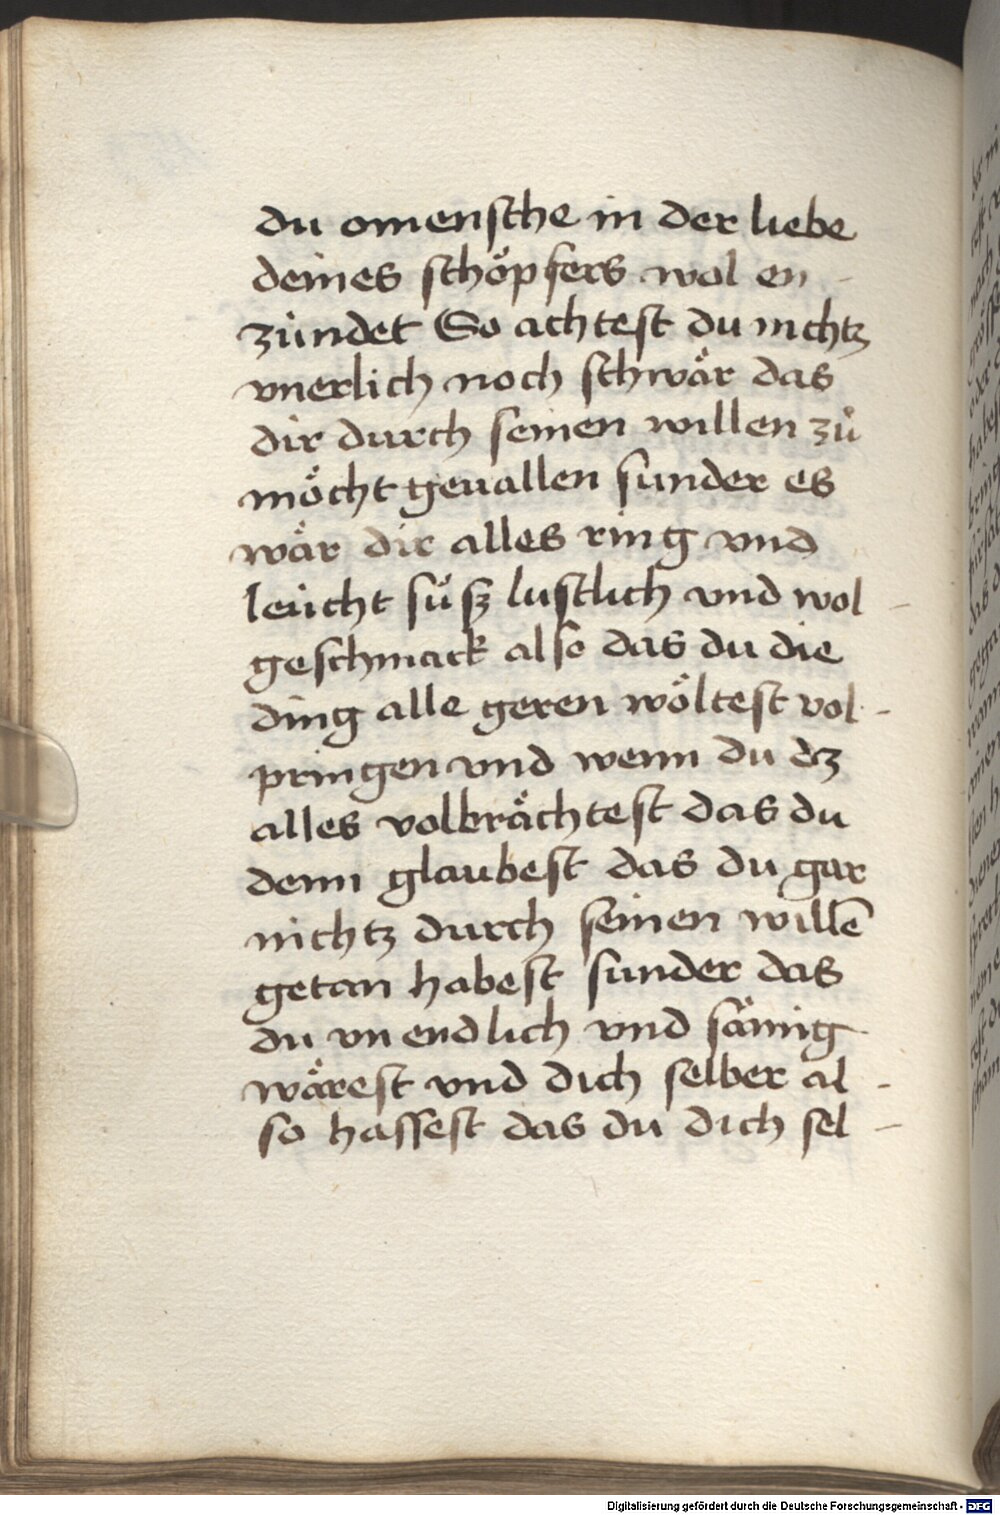 du omensche in der liebe
deines schöpfers wol en-
zündet So achtest du nichtz
vnerlich noch schwär das
dir durch seinen willen zuͦ
möcht geuallen sunder es
wär dir alles ring vnd
leücht süsz lustlich vnd wol-
geschmack also das du die
ding alle geren wöltest vol-
pringen vnd wenn du dz
alles volbrächtest das du
denn glaubest das du gar
nichtz durch seinen willē
getan habest sunder das
du vnendlich vnd sämig
wärest vnd dich selber al-
so hassest das du dich sel-
Digitalisierung gefördert durch die Deutsche Forschungsgemeinschaft - DFG